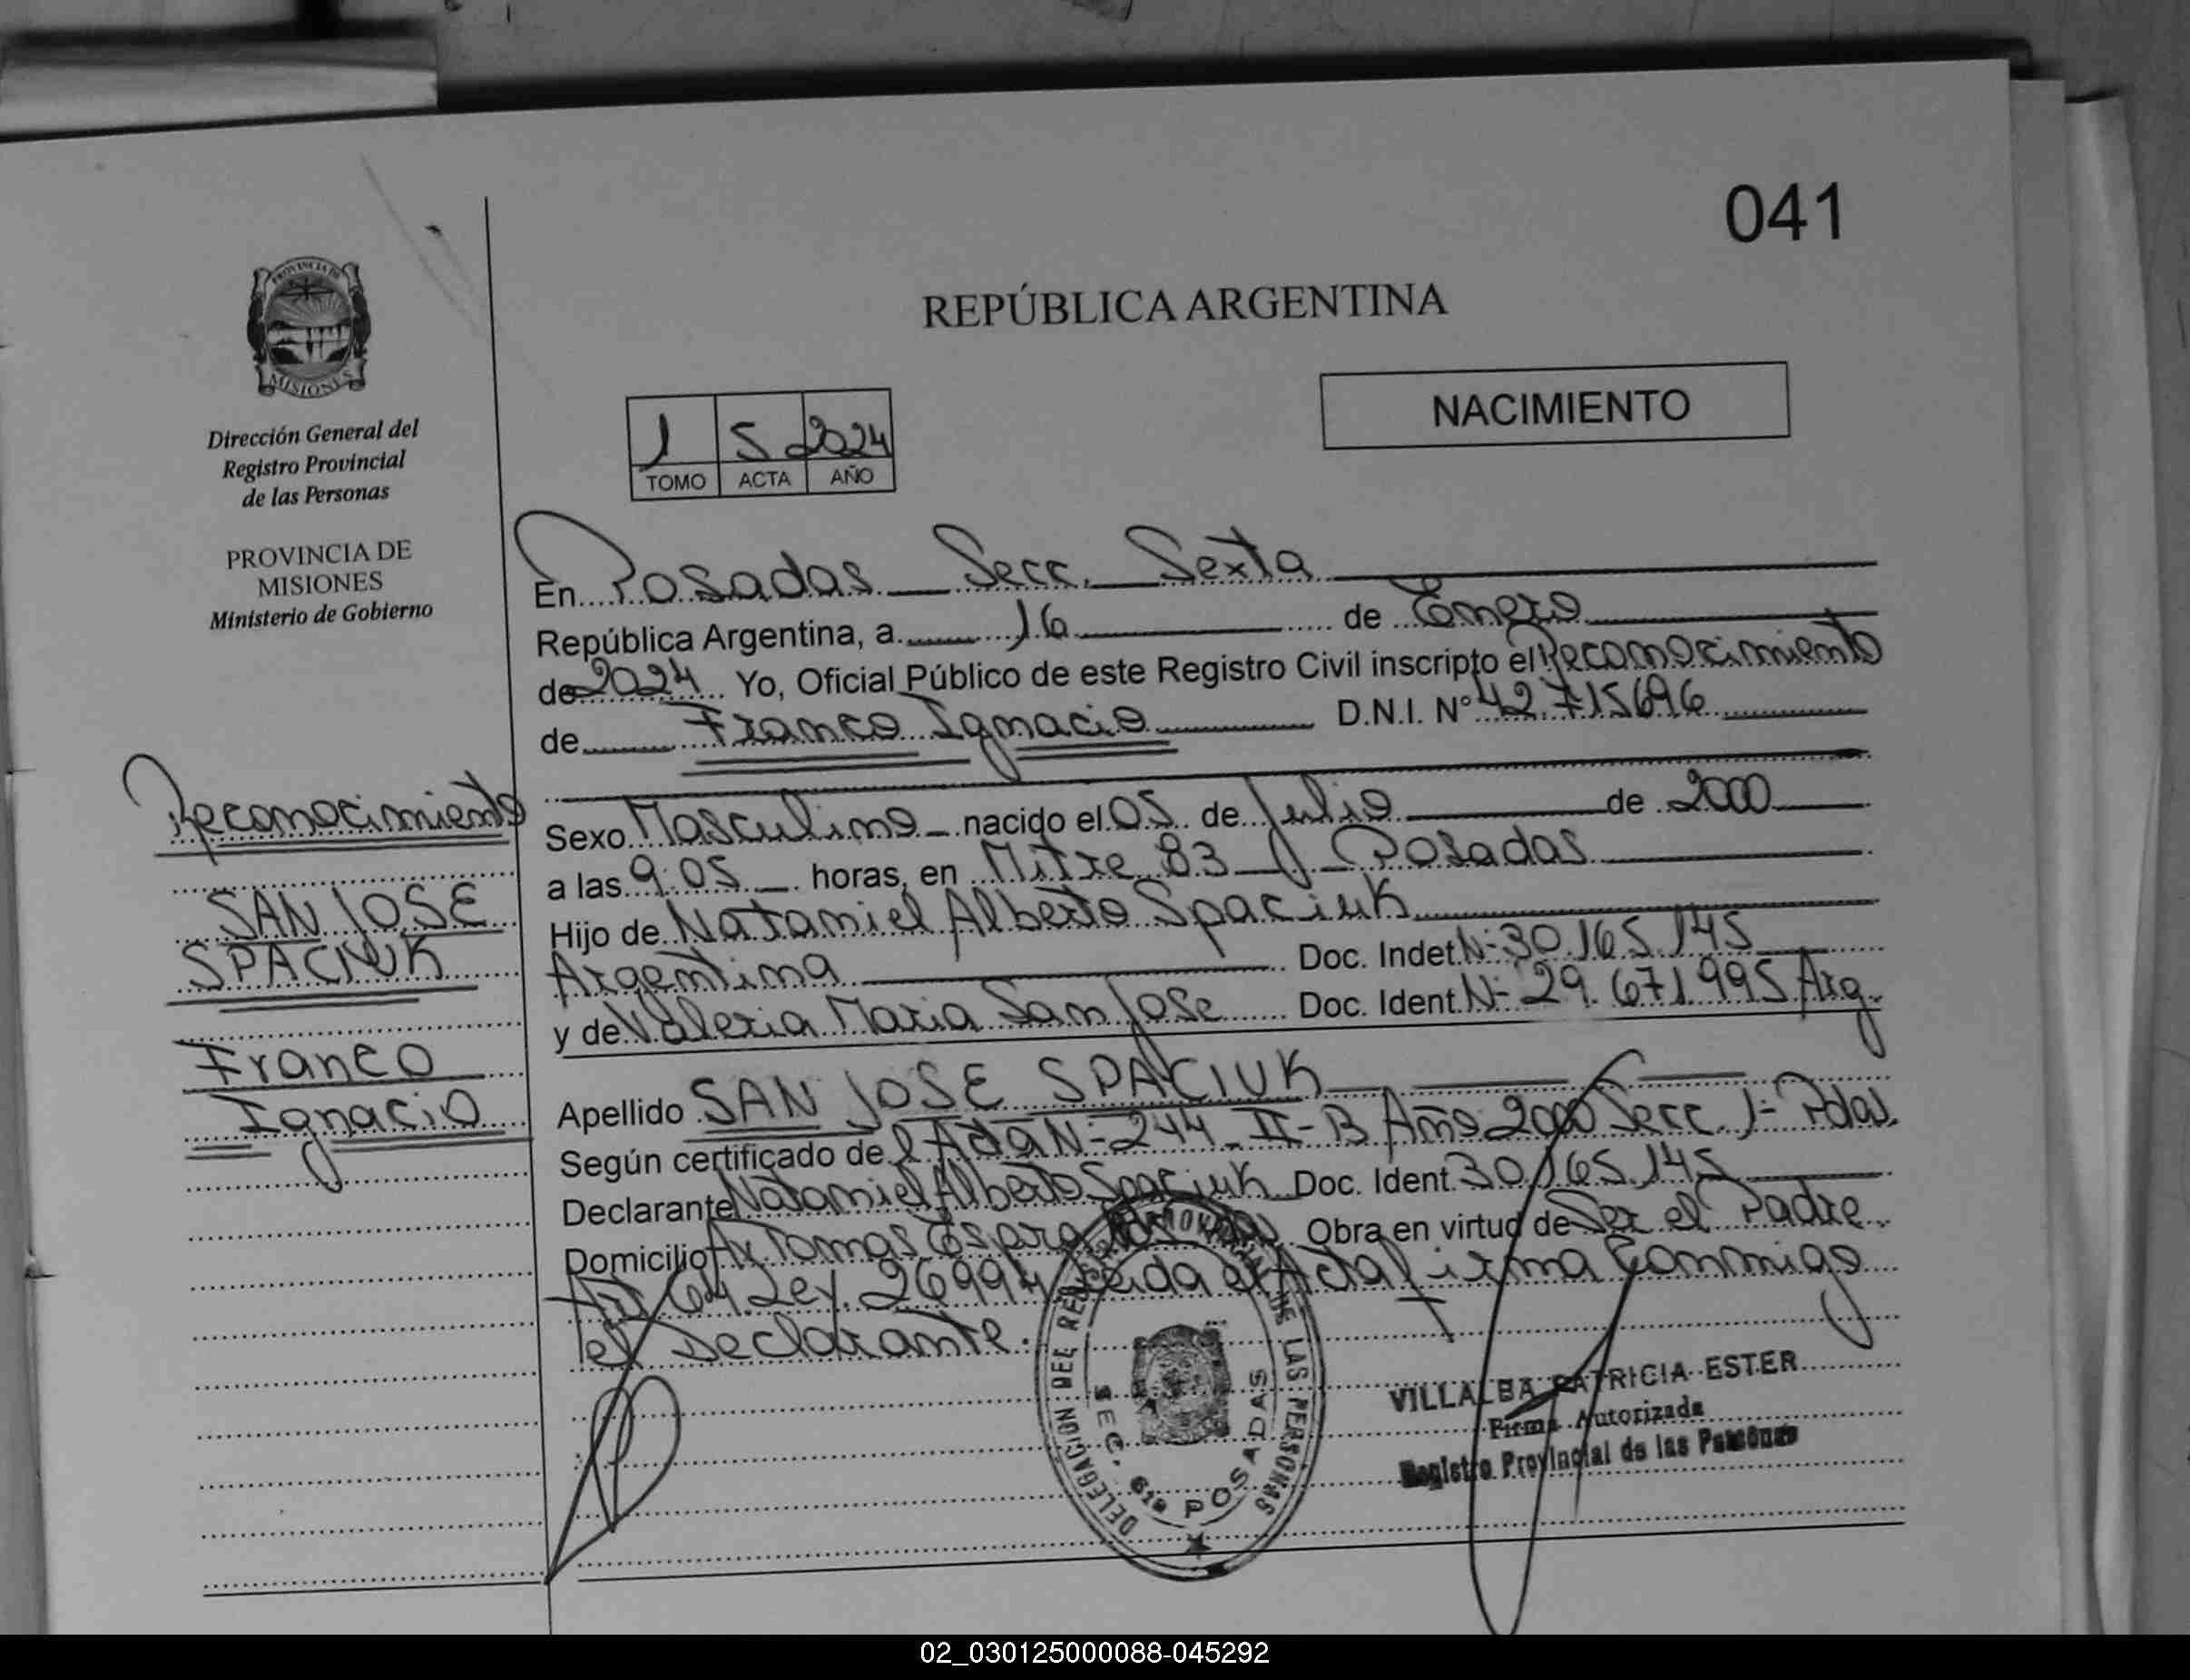 041
REPÚBLICA ARGENTINA
NACIMIENTO
PROVINCIA DE
MISIONES
Dirección General del
Registro Provincial
de las Personas
PROVINCIA DE
MISIONES
Ministerio de Gobierno
1 5 2024
TOMO ACTA AÑO
En Posadas Secc. Sexta
República Argentina, a 16 de Enero
de 2024 Yo, Oficial Público de este Registro Civil inscripto el Reconocimiento
de Franco Ignacio D.N.I. N° 42.715696
Sexo Masculino nacido el 05 de Julio de 2000
a las 9:05 horas, en Mitre 83 Posadas
Hijo de Nataniel Alberto Spaciuk
Argentina Doc. Indet N- 30.165.145
y de Valeria Maria San Jose Doc. Ident N- 29.671.995 Arg.
Apellido SAN JOSE SPACIUK
Según certificado del Acta N- 244-II-B Año 2000 Secc. 1- Pdas.
Declarante Nataniel Alberto Spaciuk Doc. Ident. 30.165.145
Domicilio Av Tomas Obra en virtud de Ser el Padre
Art 64 Ley. 26994 Leida el Acta firma Conmigo
el Declarante.
Reconocimiento
SAN JOSE
SPACIUK
Franco
Ignacio
DELEGACIÓN DEL REG PROVINCIAL DE LAS PERSONAS
SEC. 6ta POSADAS
VILLALBA PATRICIA ESTER
Firma Autorizada
Registro Provincial de las Personas
02_030125000088-045292